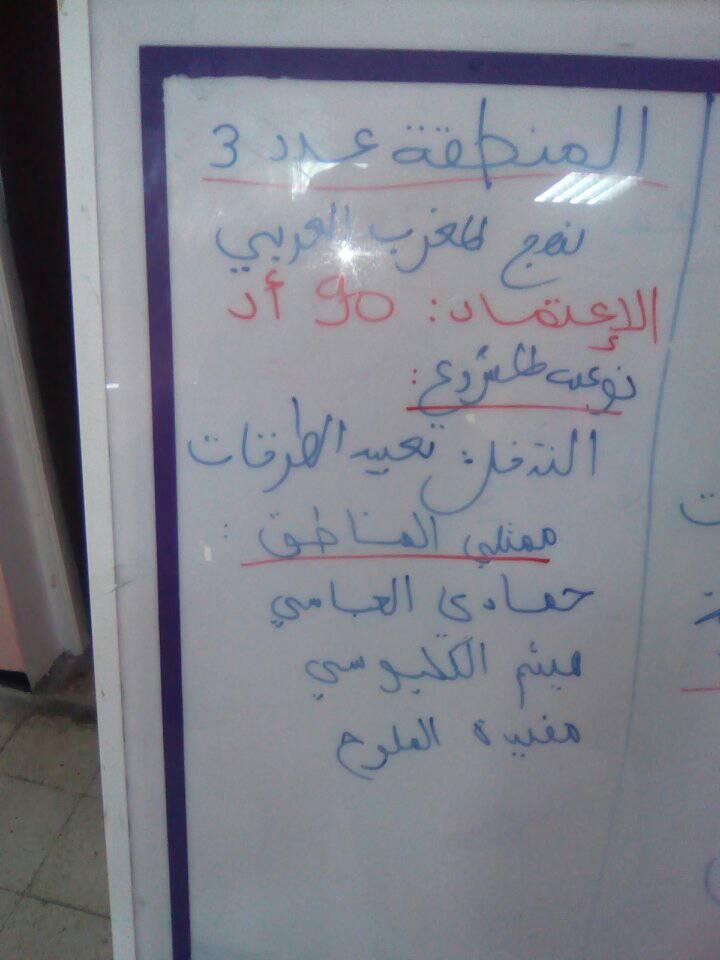 المنطقة عدد 3
نهج المغرب العربي
الإعتماد: 90 أد
نوعية المشروع:
التدخل: تعبيد الطرقات
ممثلي المناطق:
حمادي العباسي
ميثم الكلبوسي
مفيدة الملوح
ت